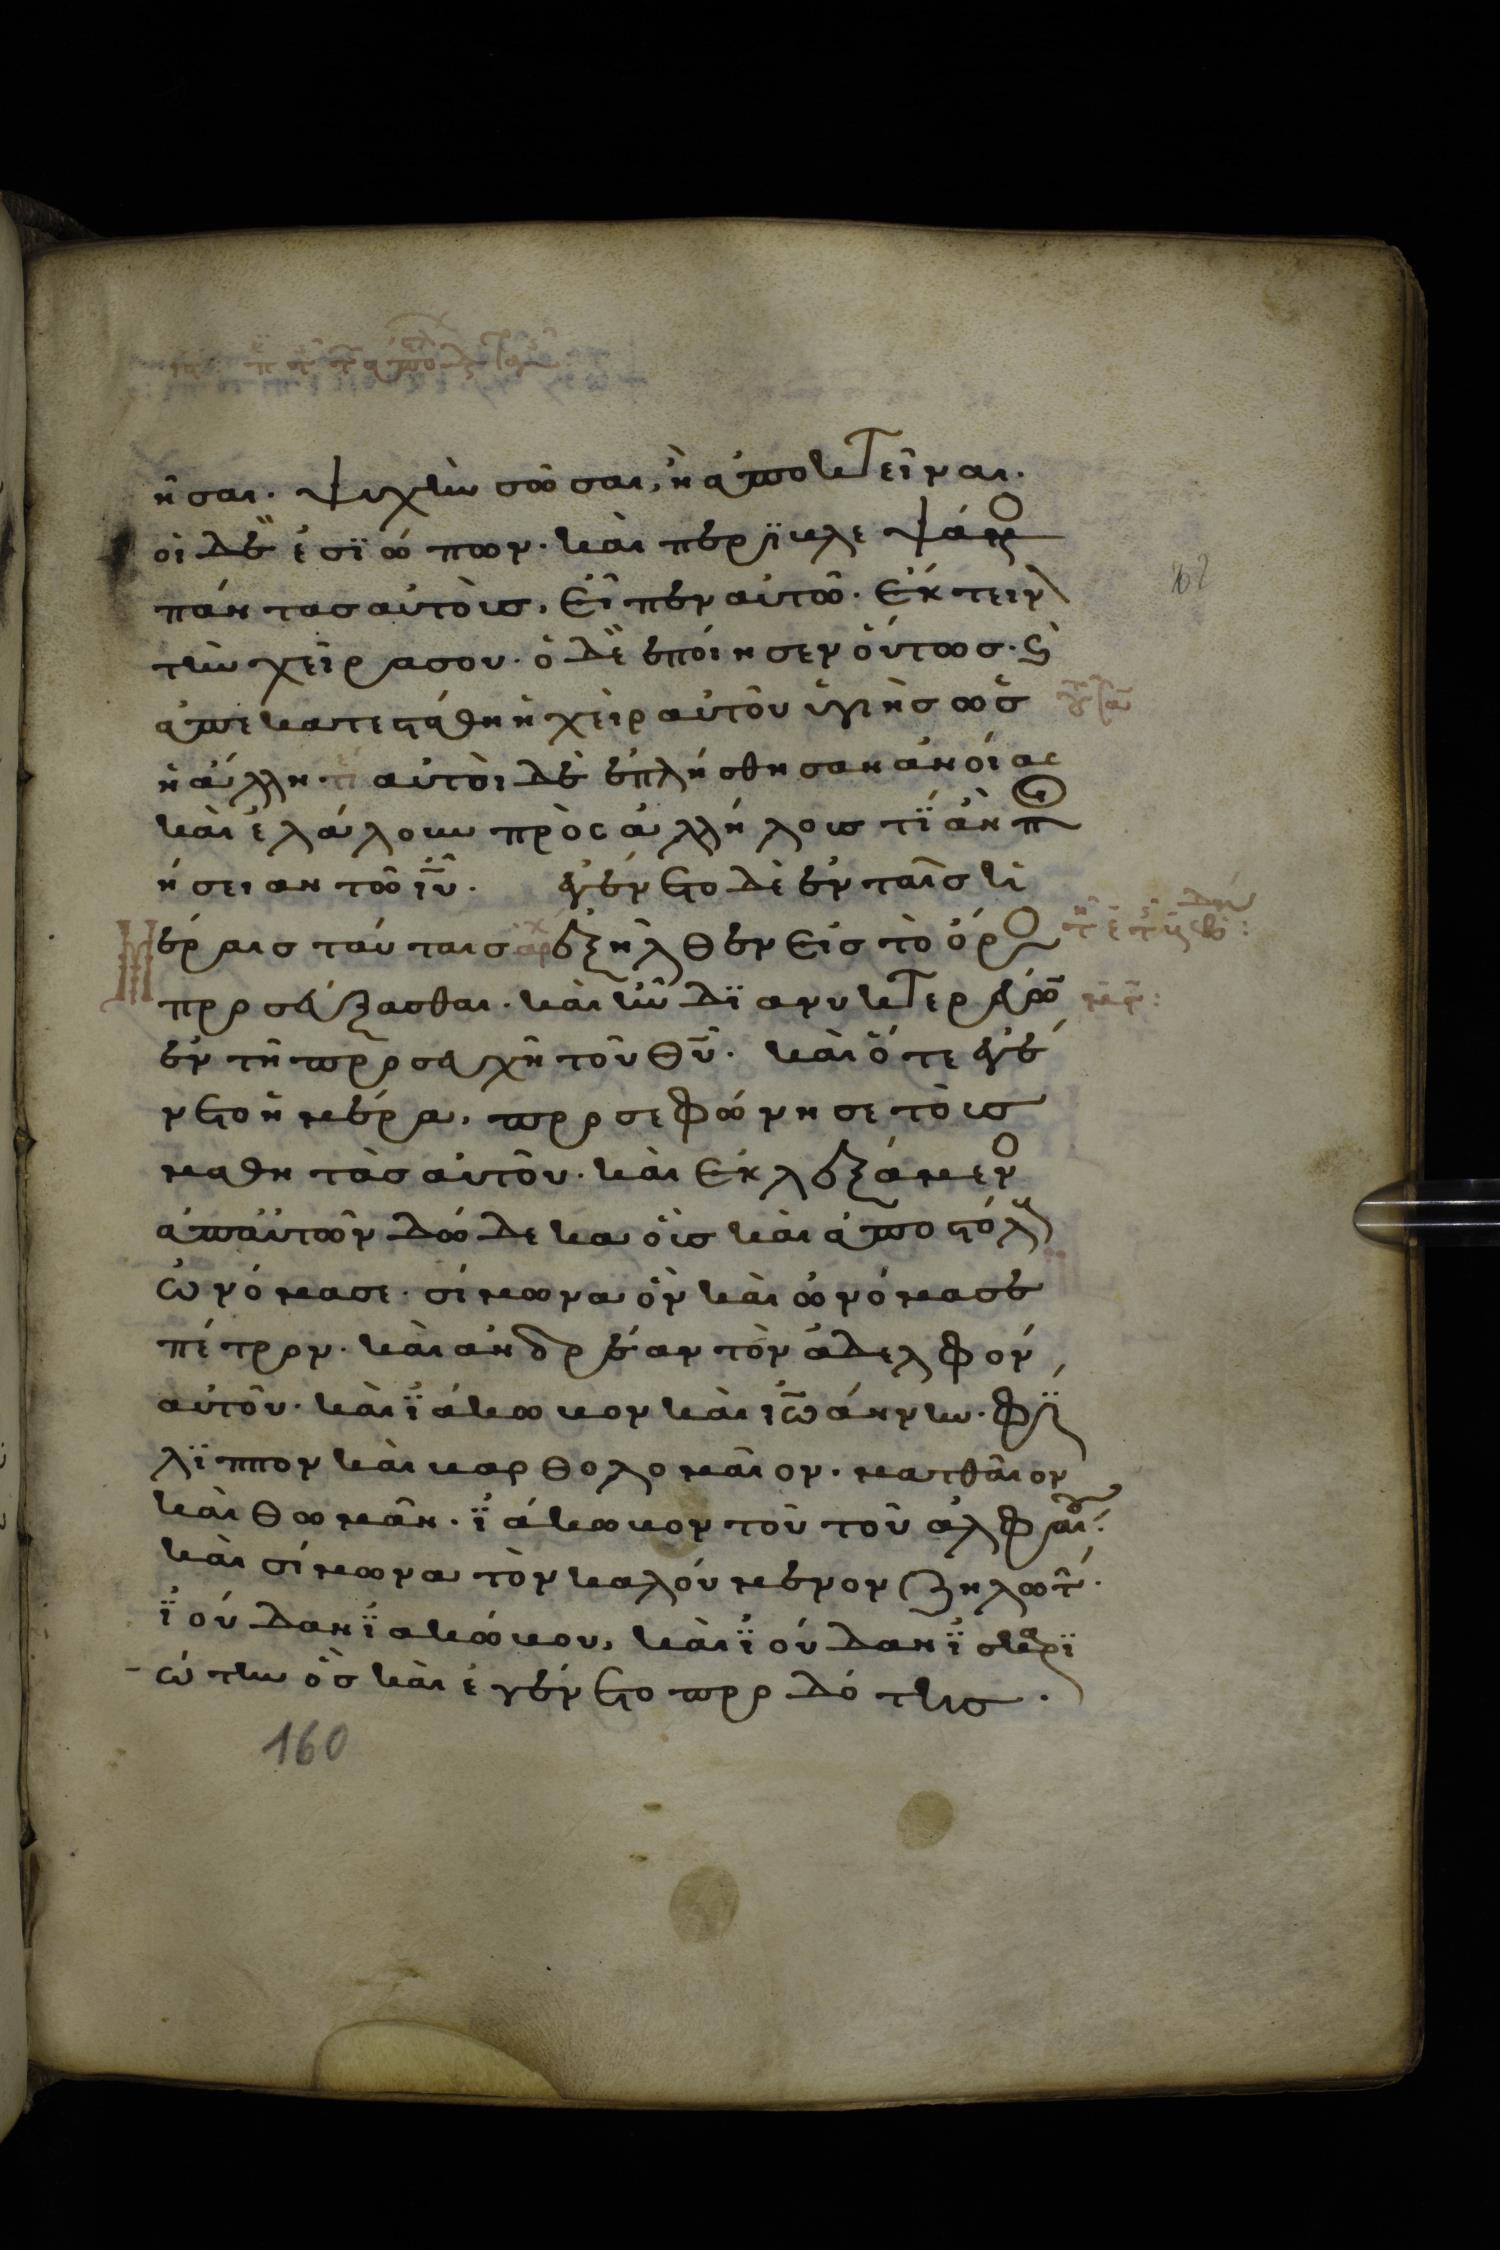 ῆσαι. ψυχὴν σῶσαι, ἢ ἀποκτεῖναι.
οἱ δὲ ἐσϊώπων. καὶ περϊβλεψάμενο
πάντας αὐτοὺς, εἶπεν αὐτῶ. ἔκτεινον
τὴν χεῖρα σου. ὁ δὲ ἐποίησεν οὕτως. καὶ
ἀπεκατεστάθη ἡ χεὶρ αὐτοῦ ὑγιὴς ὡς
ἡ ἄλλη. αὐτοὶ δὲ ἐπλήσθησαν ἀνοίας
καὶ ἐλάλουν πρὸς ἀλλήλους τί ἂν ποι
ήσειαν τῶ ἰῦ. ἐγένετο δὲ ἐν ταῖς ἡ
μέραις ταύταις ἐξῆλθεν εἰς τὸ ὄρο
προσεύξασθαι. καὶ ἦν δϊανυκτερεύων
ἐν τῆ προσευχῆ τοῦ θῦ. καὶ ὅτε ἐγέ
νετο ἡμέρα, προσεφώνησε τοὺς
μαθητὰς αὐτοῦ. καὶ ἐκλεξάμενο
ἀπ αὐτῶν δώδεκα οὓς καὶ ἀποστόλους
ὠνόμασε. σίμωνα ὃν καὶ ὠνόμασε
πέτρον. καὶ ἀνδρέαν τὸν ἀδελφὸν
αὐτοῦ. καὶ ϊάκωβον καὶ ἰωάννην. φί
λϊππον καὶ βαρθολομαῖον. ματθαῖον
καὶ θωμᾶν. ϊάκωβον τοῦ τοῦ ἀλφαίου.
καὶ σίμωνα τὸν καλούμενον ζηλωτ.
ϊούδαν ϊακώβου, καὶ ϊούδαν ϊσκαρϊ
ώτην ὃς καὶ ἐγένετο προδότης.
160